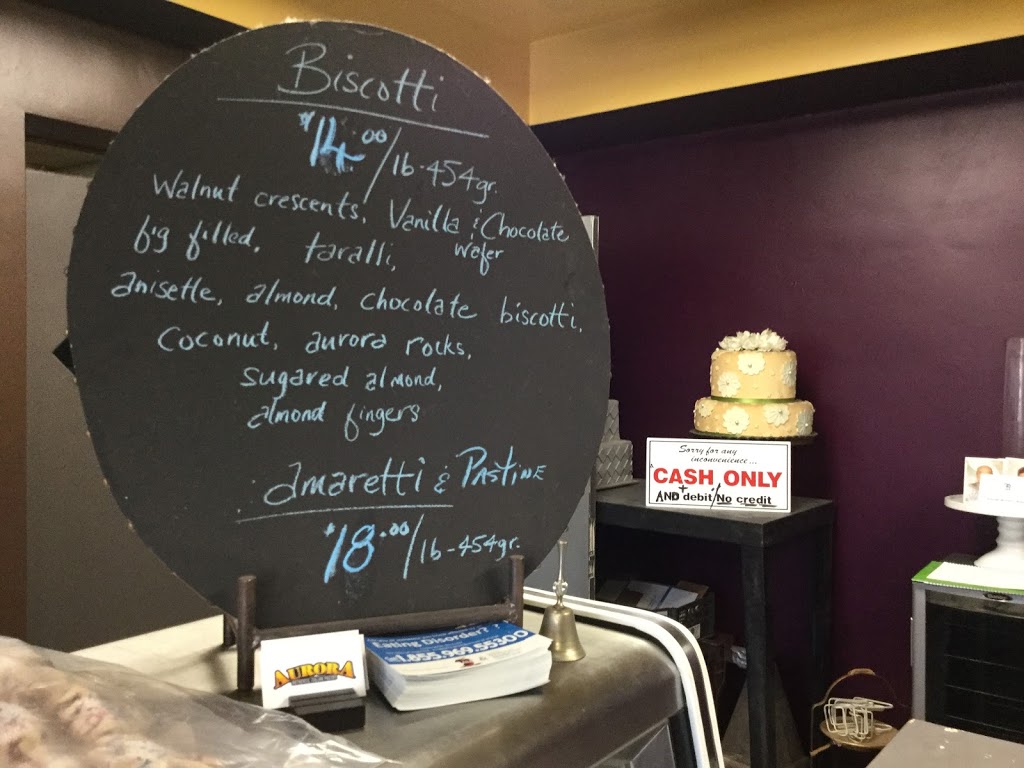 Biscotti
$14.00/lb-454gr.
Walnut crescents, Vanilla & Chocolate
fig filled, taralli, wafer
anisette, almond, chocolate biscotti,
Coconut, aurora rocks,
sugared almond,
almond fingers
amaretti & PASTINE
$18.00/lb-454gr.
Sorry for any
inconvenience...
"CASH ONLY
+
AND debit/No credit
AURORA
Eating Disorder?
1.855.969.55300